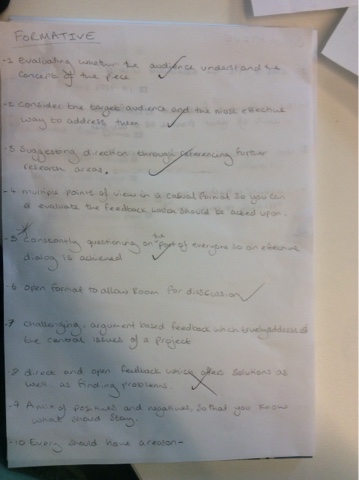 FORMATIVE
-1 Evaluating whether the audience understand the
concepts of the piece
-2 Consider the target audience and the most effective
way to address them
-3 Suggesting direction through referencing further
research areas.
-4 multiple points of view in a casual format so you can
evaluate the feedback which should be acted upon.
-5 Constantly questioning on the part of everyone so an effective
dialog is achieved
-6 open format to allow room for discussion
-7 challenging, argument based feedback which truely address
the central issues of a project
-8 direct and open feedback which offer solutions as
well as finding problems.
-9 A mix of positives and negatives, so that you know
what should stay.
-10 Every should have a reason-